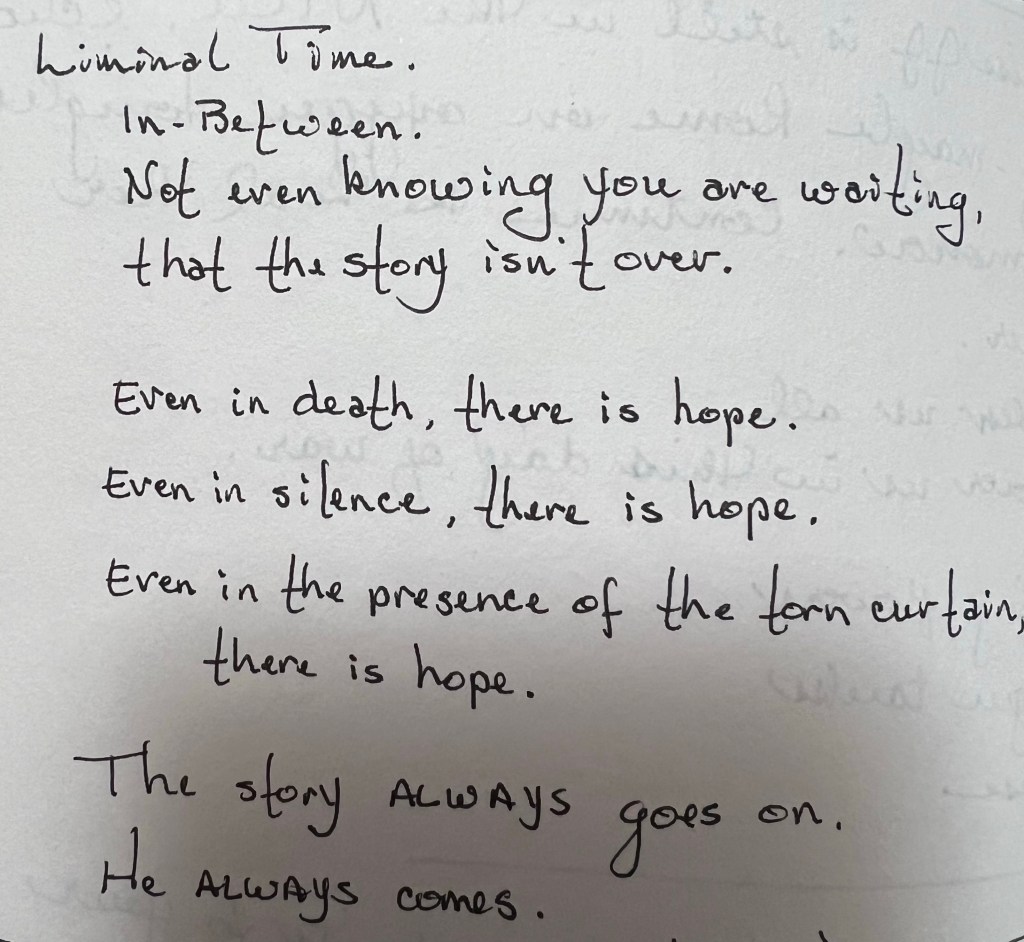 Liminal Time.
In-Between.
Not even knowing you are waiting,
that the story isn't over.
Even in death, there is hope.
Even in silence, there is hope.
Even in the presence of the torn curtain,
there is hope.
The story ALWAYS goes on.
He ALWAYS comes.